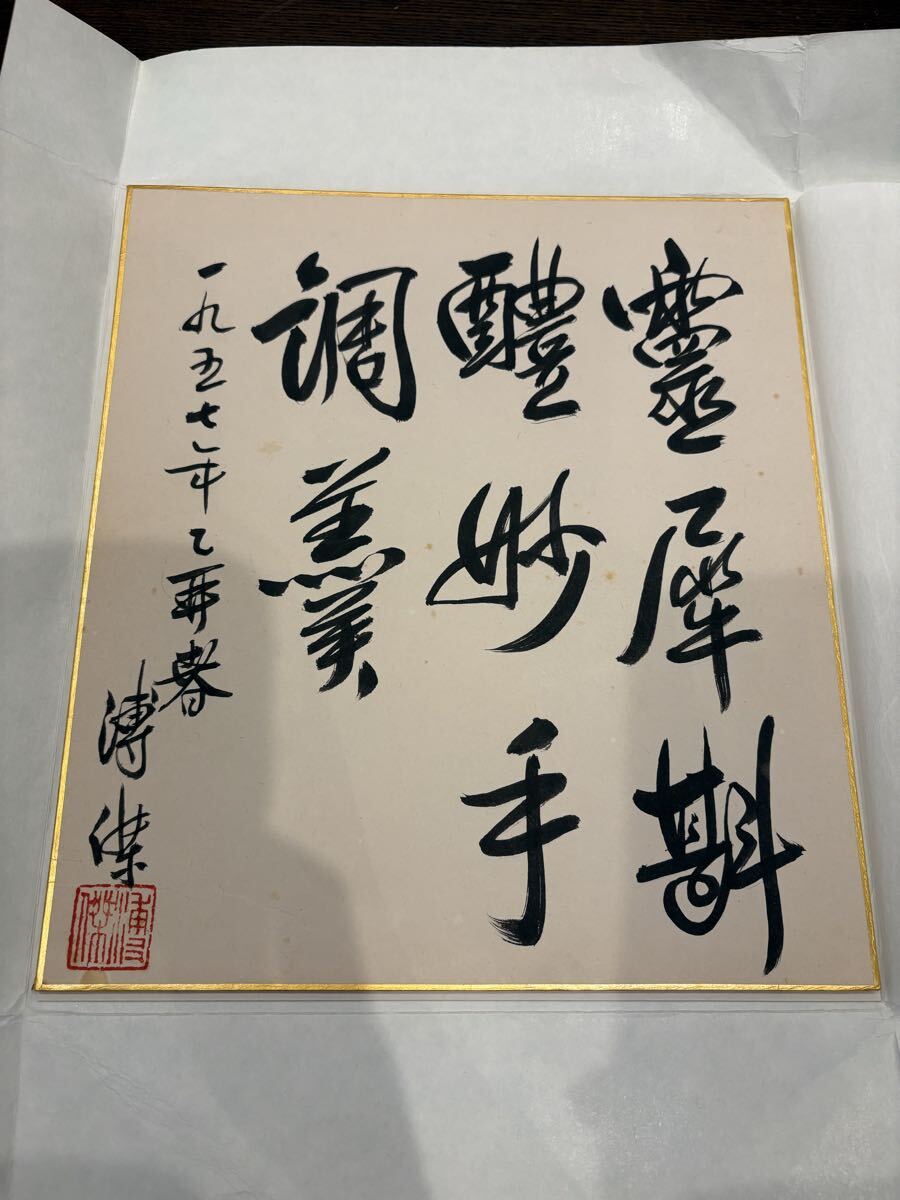 靈犀斟
醴妙手
調羹
一九五七年乙酉春
溥傑
溥傑